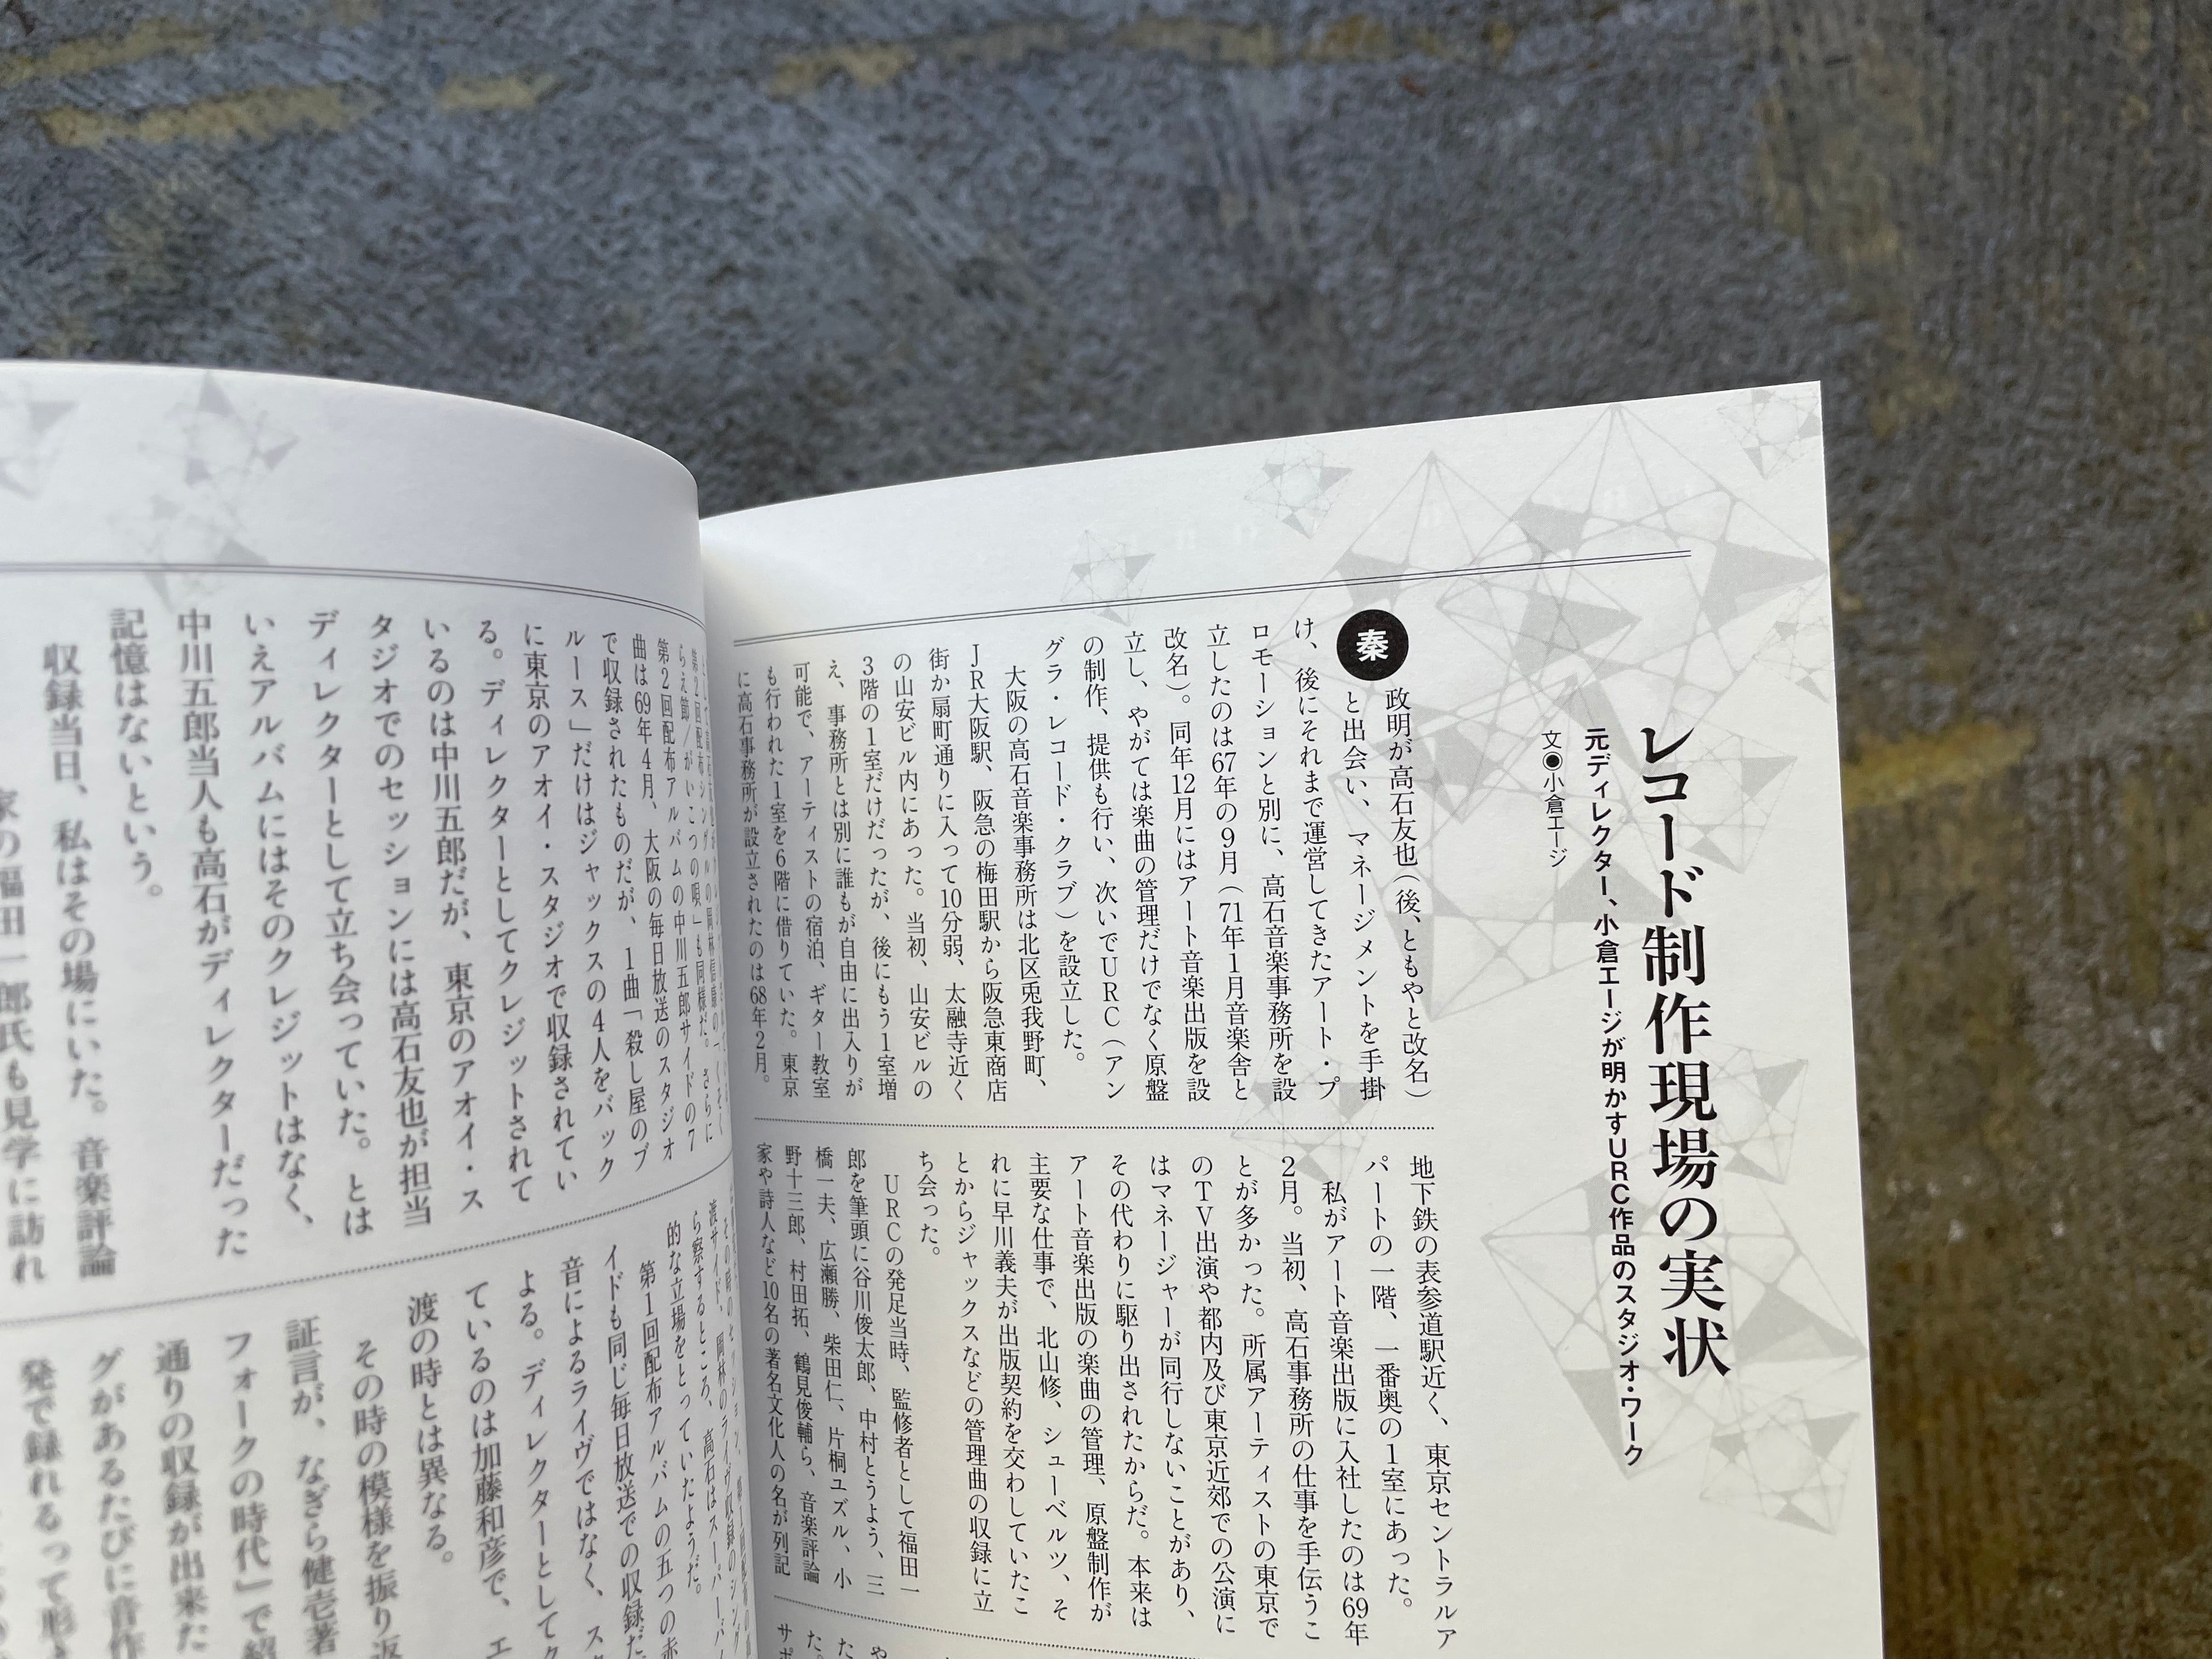 レコード制作現場の実状
元ディレクター、小倉エージが明かすURC作品のスタジオ・ワーク
文◉小倉エージ
秦政明が高石友也（後、ともやと改名）
と出会い、マネージメントを手掛
け、後にそれまで運営してきたアート・プ
ロモーションと別に、高石音楽事務所を設
立したのは67年の9月（71年1月音楽舎と
改名）。同年12月にはアート音楽出版を設
立し、やがては楽曲の管理だけでなく原盤
の制作、提供も行い、次いでURC（アン
グラ・レコード・クラブ）を設立した。
大阪の高石音楽事務所は北区兎我野町、
JR大阪駅、阪急の梅田駅から阪急東商店
街か扇町通りに入って10分弱、太融寺近く
の山安ビル内にあった。当初、山安ビルの
3階の1室だけだったが、後にもう1室増
え、事務所とは別に誰もが自由に出入りが
可能で、アーティストの宿泊、ギター教室
も行われた1室を6階に借りていた。東京
に高石事務所が設立されたのは68年2月。
地下鉄の表参道駅近く、東京セントラルア
パートの一階、一番奥の1室にあった。
私がアート音楽出版に入社したのは69年
2月。当初、高石事務所の仕事を手伝うこ
とが多かった。所属アーティストの東京で
のTV出演や都内及び東京近郊での公演に
はマネージャーが同行しないことがあり、
その代わりに駆り出されたからだ。本来は
アート音楽出版の楽曲の管理、原盤制作が
主要な仕事で、北山修、シューベルツ、そ
れに早川義夫が出版契約を交わしていたこ
とからジャックスなどの管理曲の収録に立
ち会った。
URCの発足当時、監修者として福田一
郎を筆頭に谷川俊太郎、中村とうよう、三
橋一夫、広瀬勝、柴田仁、片桐ユズル、小
野十三郎、村田拓、鶴見俊輔ら、音楽評論
家や詩人など10名の著名文化人の名が列記
や
た
た。
サポ
らえ節／がいこつの唄」も同様だ。さらに
第2回配布アルバムの中川五郎サイドの7
曲は69年4月、大阪の毎日放送のスタジオ
で収録されたものだが、1曲「殺し屋のブ
ルース」だけはジャックスの4人をバック
に東京のアオイ・スタジオで収録されてい
る。ディレクターとしてクレジットされて
いるのは中川五郎だが、東京のアオイ・ス
タジオでのセッションには高石友也が担当
ディレクターとして立ち会っていた。とは
いえアルバムにはそのクレジットはなく、
中川五郎当人も高石がディレクターだった
記憶はないという。
収録当日、私はその場にいた。音楽評論
家の福田一郎氏も見学に訪れ
渡サイド、岡林のライヴ収録のシング
ら察するところ、高石はスーパーバイ
的な立場をとっていたようだ。
第1回配布アルバムの五つの赤
イドも同じ毎日放送での収録だ
音によるライヴではなく、ス
よる。ディレクターとしてク
ているのは加藤和彦で、エ
渡の時とは異なる。
その時の模様を振り返
証言が、なぎら健壱著
フォークの時代」で紹
通りの収録が出来た
グがあるたびに音作
発で録れるって形